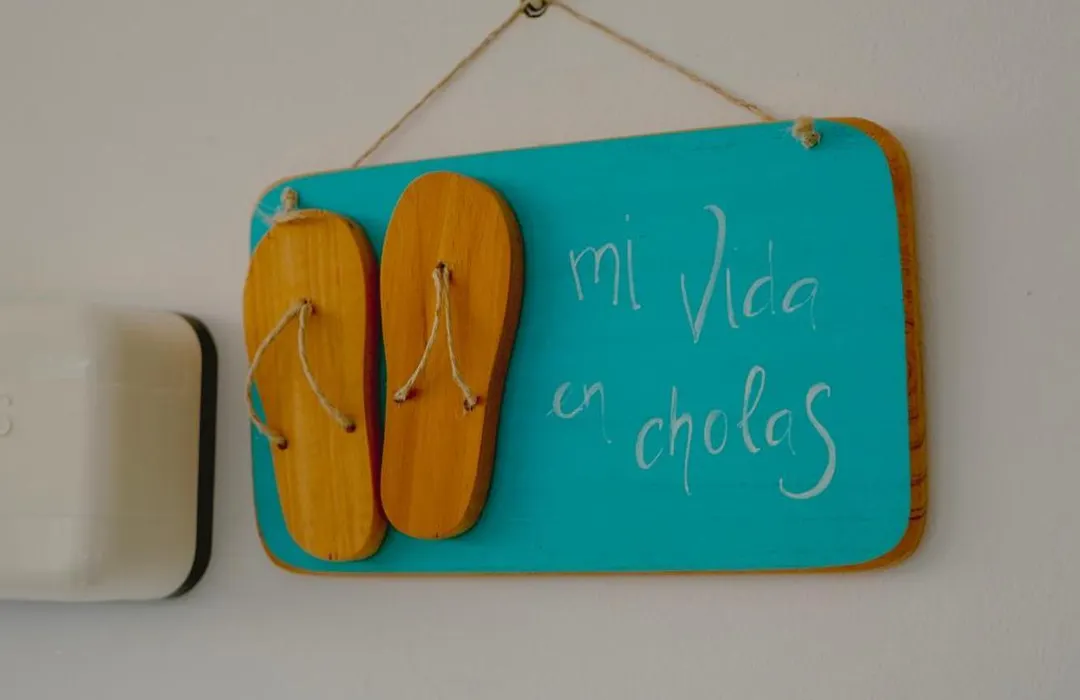 mi Vida
en cholas